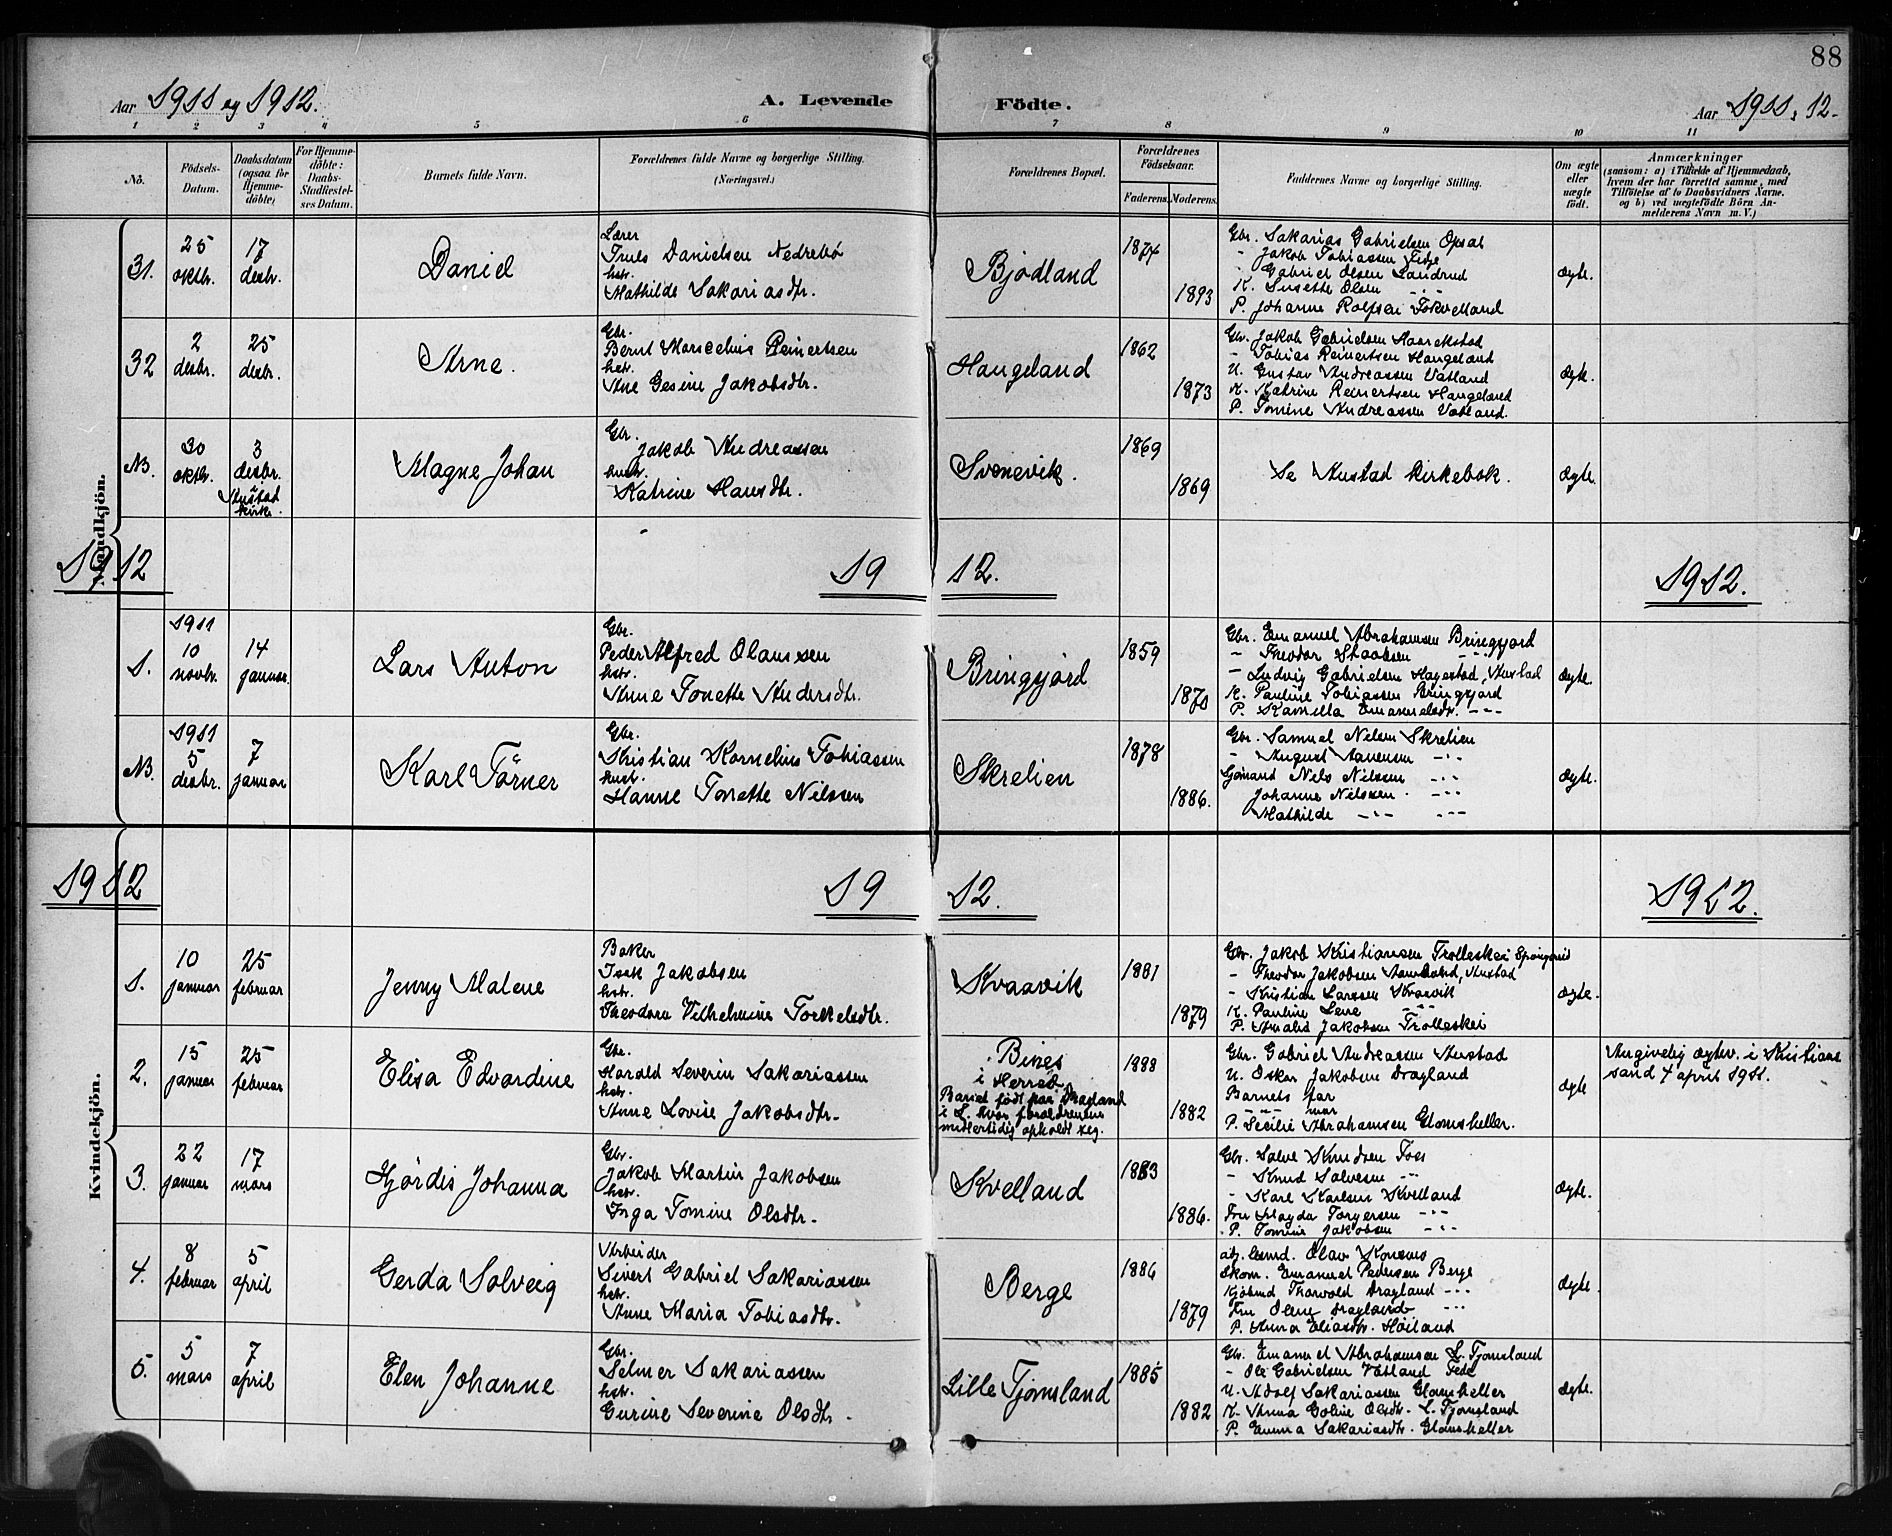 88
Aar 1911 og 1912.
A. Levende Födte.
Aar 1911, 12.
1 2 3 4 5 6 7 8 9 10 11
No.
Födsels-Datum.
Daabsdatum (ogsaa for Hjemme-döbte)
For Hjemme-döbte: Daabs-Stadfæstel-ses Datum.
Barnets fulde Navn.
Forældrenes fulde Navne og borgerlige Stilling.
(Næringsvei.)
Forældrenes Bopæl.
Forældrenes Födselsaar.
Faderens. Moderens.
Faddernes Navne og borgerlige Stilling.
Om ægte eller uægte födt.
Anmærkninger
(saasom: a) i Tilfælde af Hjemmedaab,
hvem der har forrettet samme, med
Tilföielse af to Daabsvidners Navne.
og b) ved uægtefödte Börn An-
melderens Navn m. V.)
Mandkjön.
31.
25 oktbr.
17 desbr.
Daniel
Lærer
Truls Danielsen Nedrebö
hstr.
Mathilde Sakariasdtr.
Bjödland
1874
1893
Gbr. Sakarias Gabrielsen Opsal
- Jakob Tobiassen Eige
- Gabriel Olsen Landrud
K. Susette Olsen -"-
P. Johanne Rolfsen Fokvelland
ægte.
32
2 desbr.
25 desbr.
Arne.
Gbr.
Bernt Marselius Reinertsen
hstr.
Ane Gesine Jakobsdtr.
Haugeland
1862
1873
Gbr. Jakob Gabrielsen Haarekstad
- Tobias Reinertsen Haugeland
U. Gustav Andreassen Vatland
K. Katrine Reinertsen Haugeland
P. Tomine Andreassen Vatland.
ægte.
NB.
30 oktbr.
3 desbr. Austad kirke.
Magne Johan
Gbr.
Jakob Andreassen
hustr.
Katrine Hansdtr.
Svenevik.
1869
1869
Se Austad kirkebok.
ægte.
1912
19 12.
1912.
1.
1911 10 novbr.
14 januar.
Lars Anton
Gbr.
Peder Alfred Olaussen
hstr.
Anne Tonette Andersdtr.
Bringsjord
1859
1870
Gbr. Emanuel Abrahamsen Bringsjord
- Theodor Isaaksen -"-
- Ludvig Gabrielsen Hagestad, Austad
K. Pauline Tobiassen Bringsjord
P. Kamilla Emanuelsdr. ---
ægte.
NB.
1911 5 desbr.
7 januar
Karl Törner
Gbr.
Kristian Kornelius Tobiassen
hustr.
Hanne Tonette Nilssen
Skrelien
1878
1886.
Gbr. Samuel Nilsen Skrelien
- August Aanensen -"-
Sjömand Nils Nilssen -"-
Johanne Nilssen -"-
Mathilde -"- -"-
ægte.
Kvindekjön.
1912
19 12.
1912.
1.
10 januar
25 februar
Jenny Malene
Baker
Isak Jakobsen
hstr.
Theodora Vilhelmine Torkelsdtr.
Kvaavik
1881
1879
Gbr. Jakob Kristiansen Trolleskei Spangereid
- Theodor Jakobsen Aamland, Austad
- Kristian Larssen Kvaavik
K. Pauline Lene -"-
P. Amalie Jakobsen Trolleskei
ægte.
2.
15 januar
25 februar
Elisa Edvardine
Gbr.
Harald Severin Sakariassen
hstr.
Anne Lovise Jakobsdtr.
Bines
i Herred.
Barnet född paa Dragland
i L. hvor forældrenene
midlertidig opholdt seg.
1888
1882
Gbr. Gabriel Andreassen Austad
U. Oskar Jakobsen Dragland
Barnets far
-"- mor
P. Secilie Abrahamsen Glomsheller.
ægte
Angivelig ægtev. i Kristian-
sand 4 april 1911.
3.
22 januar
17 mars
Hjördis Johanna
Gbr.
Jakob Martin Jakobsen
hstr.
Inga Tomine Olsdtr.
Kvelland
1883
1886.
Gbr. Salve Knudsen Foss
- Knud Salvesen -"-
- Karl Karlsen Kvelland
Fru Magda Torgersen -"-
P. Tomine Jakobsen -"-
ægte.
4.
8 februar
5 april
Gerda Solveig
Arbeider
Sivert Gabriel Sakariassen
hstr.
Anne Maria Tobiasdtr.
Berge
1886
1879
Olav Konsmo
Skom. Emanuel Pedersen Berge
Kjöbmd Thorvald Dragland ---
Fru Olene Dragland ---
P. Anna Eliasdtr. Höiland
ægte.
5.
5 mars
7 april
Elen Johanne
Gbr.
Selmer Sakariassen
hstr.
Gurine Severine Olsdtr.
Lille Tjomsland
1885
1882
Gbr. Emanuel Abrahamsen L. Tjomsland
- Ole Gabrielsen Vatland Fede
U. Adolf Sakariassen Glomsheller
K. Anna Goline Olsdtr. L. Tjomsland
P. Emma Sakariasdtr. Glomsheller
ægte.